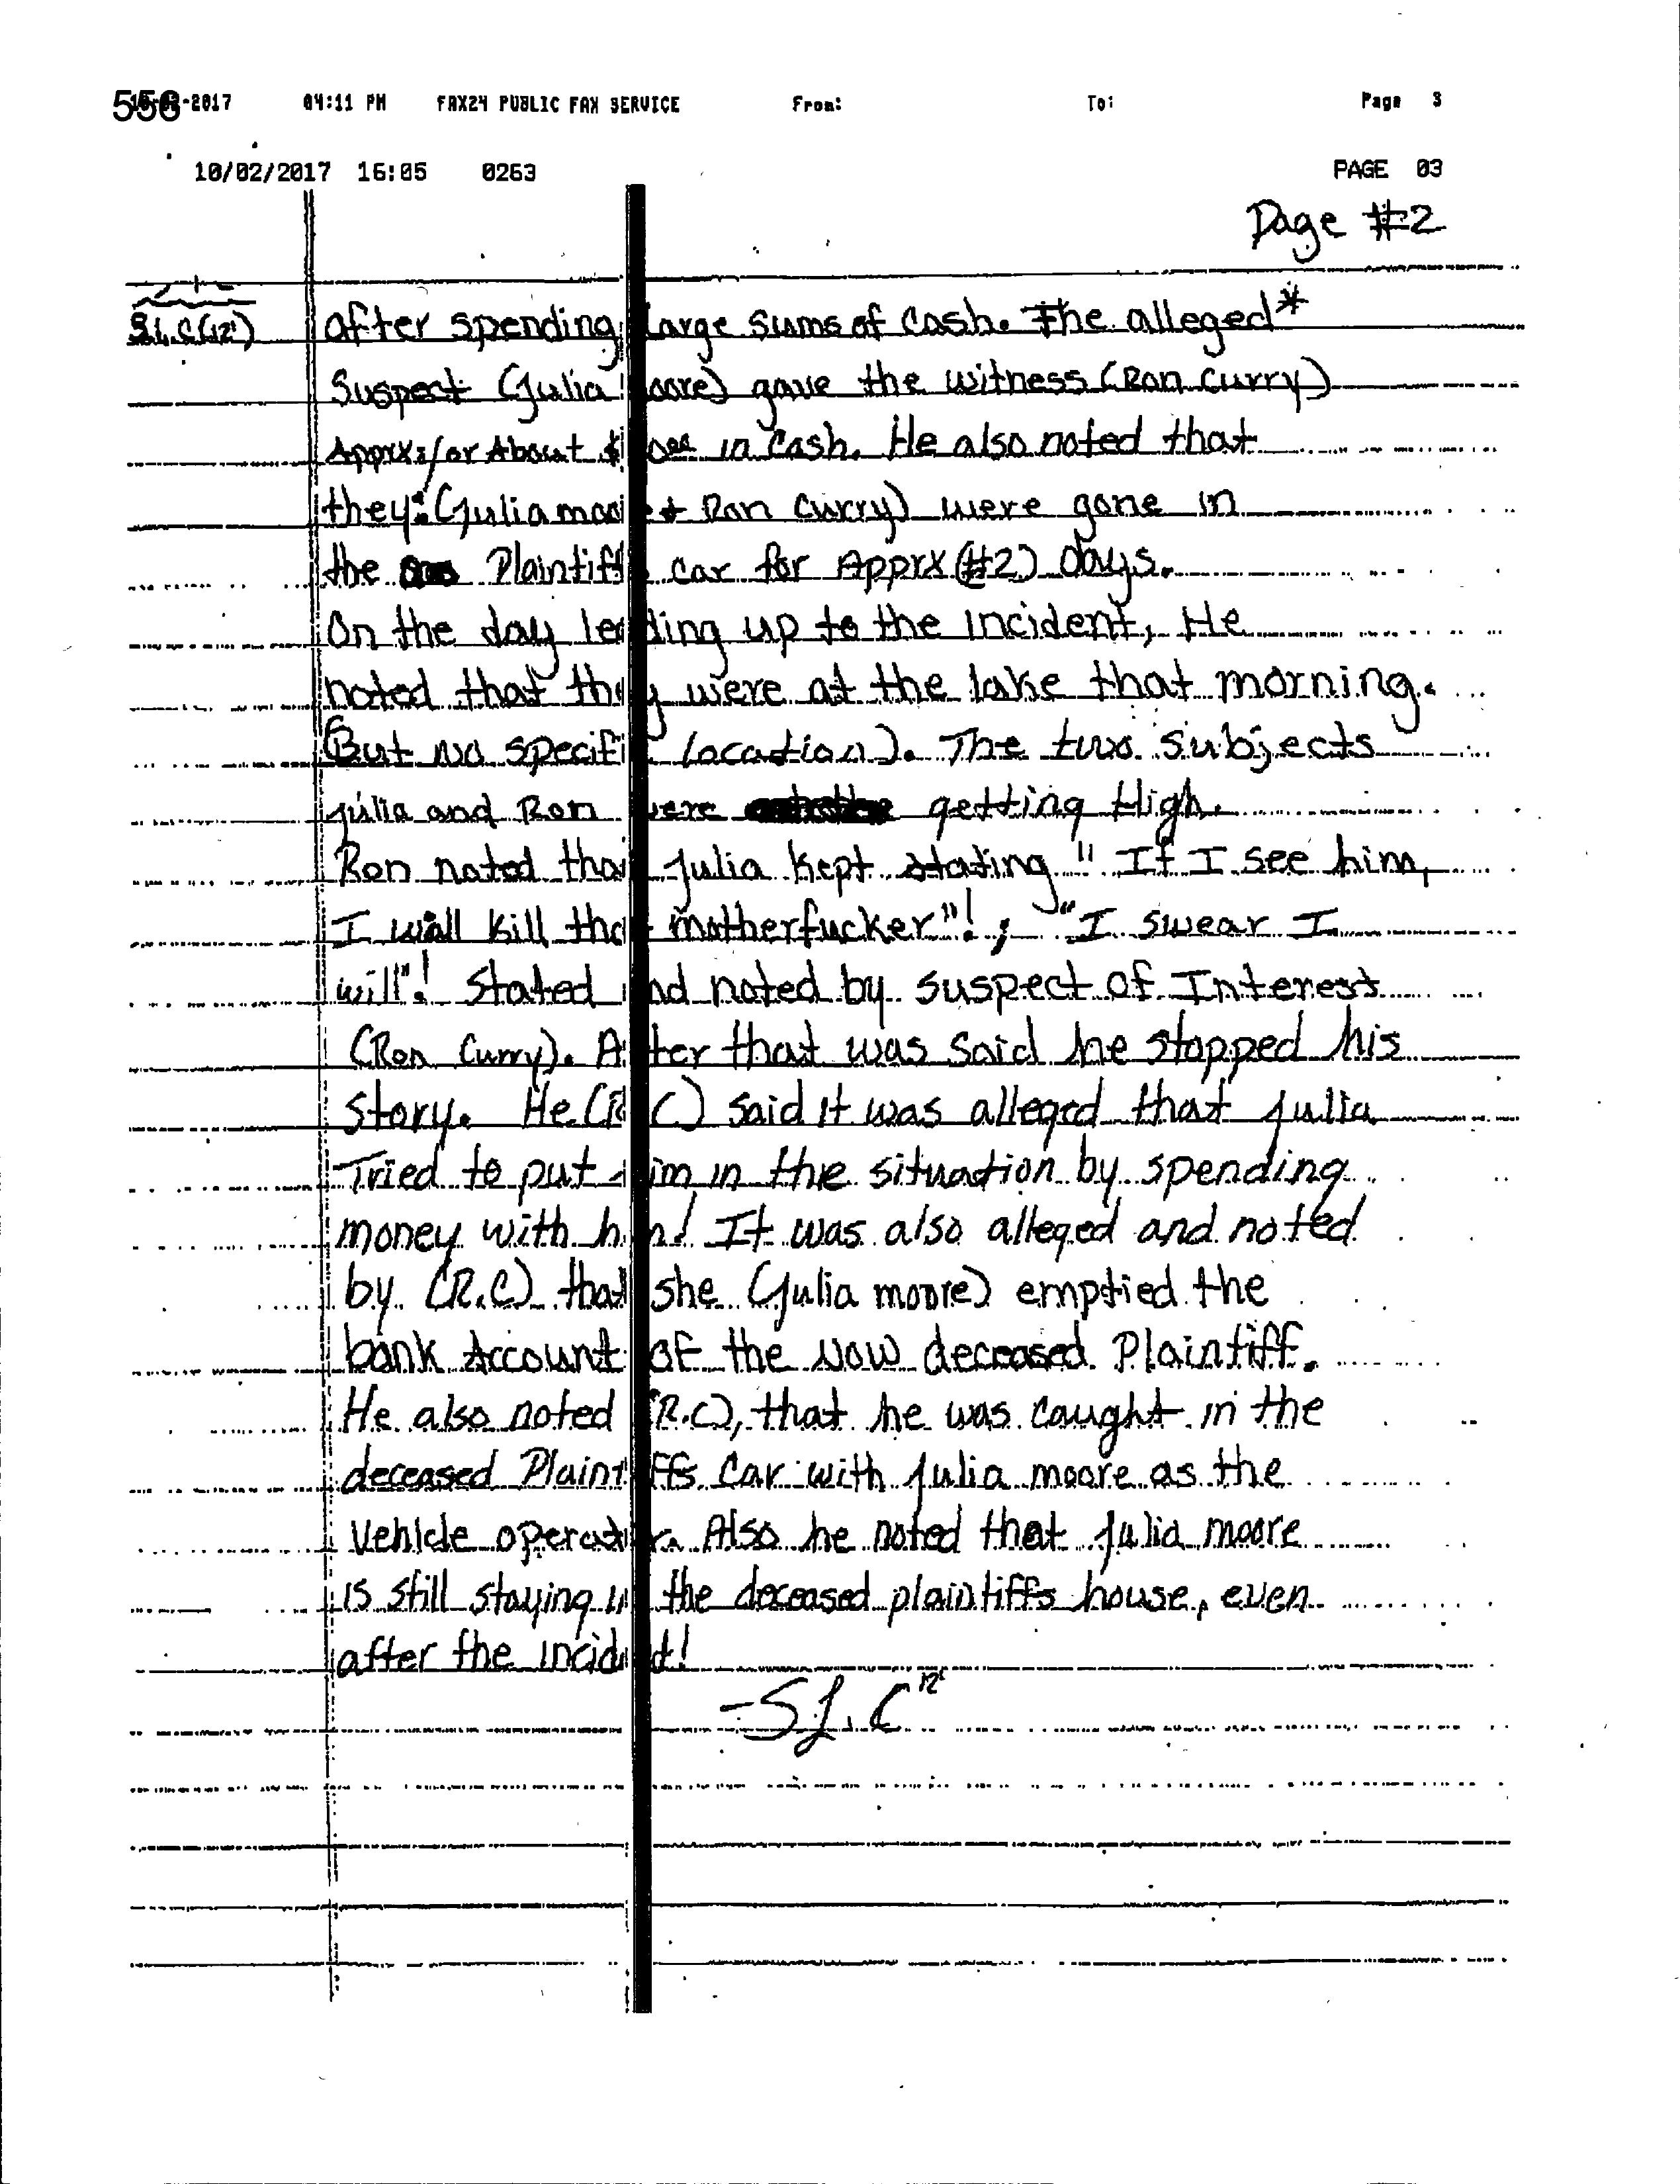 556 -2017 04:11 PM FAX24 PUBLIC FAX SERVICE From: To: Page 3
10/02/2017 16:05 0263 PAGE 03
Page #2
S.L.C(12') after spending large sums of cash. The alleged*
Suspect (Julia Moore) gave the witness (Ron Curry)
Apprx:/or About $ in Cash. He also noted that
they: (Julia moore + Ron Curry) were gone in
the Plaintiffs car for Apprx (#2) days.
On the day leading up to the incident, He
noted that they were at the lake that morning.
(But no specific location). The two subjects
Julia and Ron were getting High.
Ron noted that Julia kept stating "If I see him,
I will kill that motherfucker"!; "I swear I
will"! stated and noted by suspect of Interest
(Ron Curry). After that was said he stopped his
story. He (R.C) said it was alleged that Julia
Tried to put him in the situation by spending
money with him! It was also alleged and noted
by (R.C) that she (Julia moore) emptied the
bank Account of the Now deceased Plaintiff.
He also noted (R.C), that he was caught in the
deceased Plaintiffs Car with Julia moore as the
Vehicle operator. Also he noted that Julia moore
is still staying in the deceased plaintiffs house, even
after the incident!
-S.L.C 12'